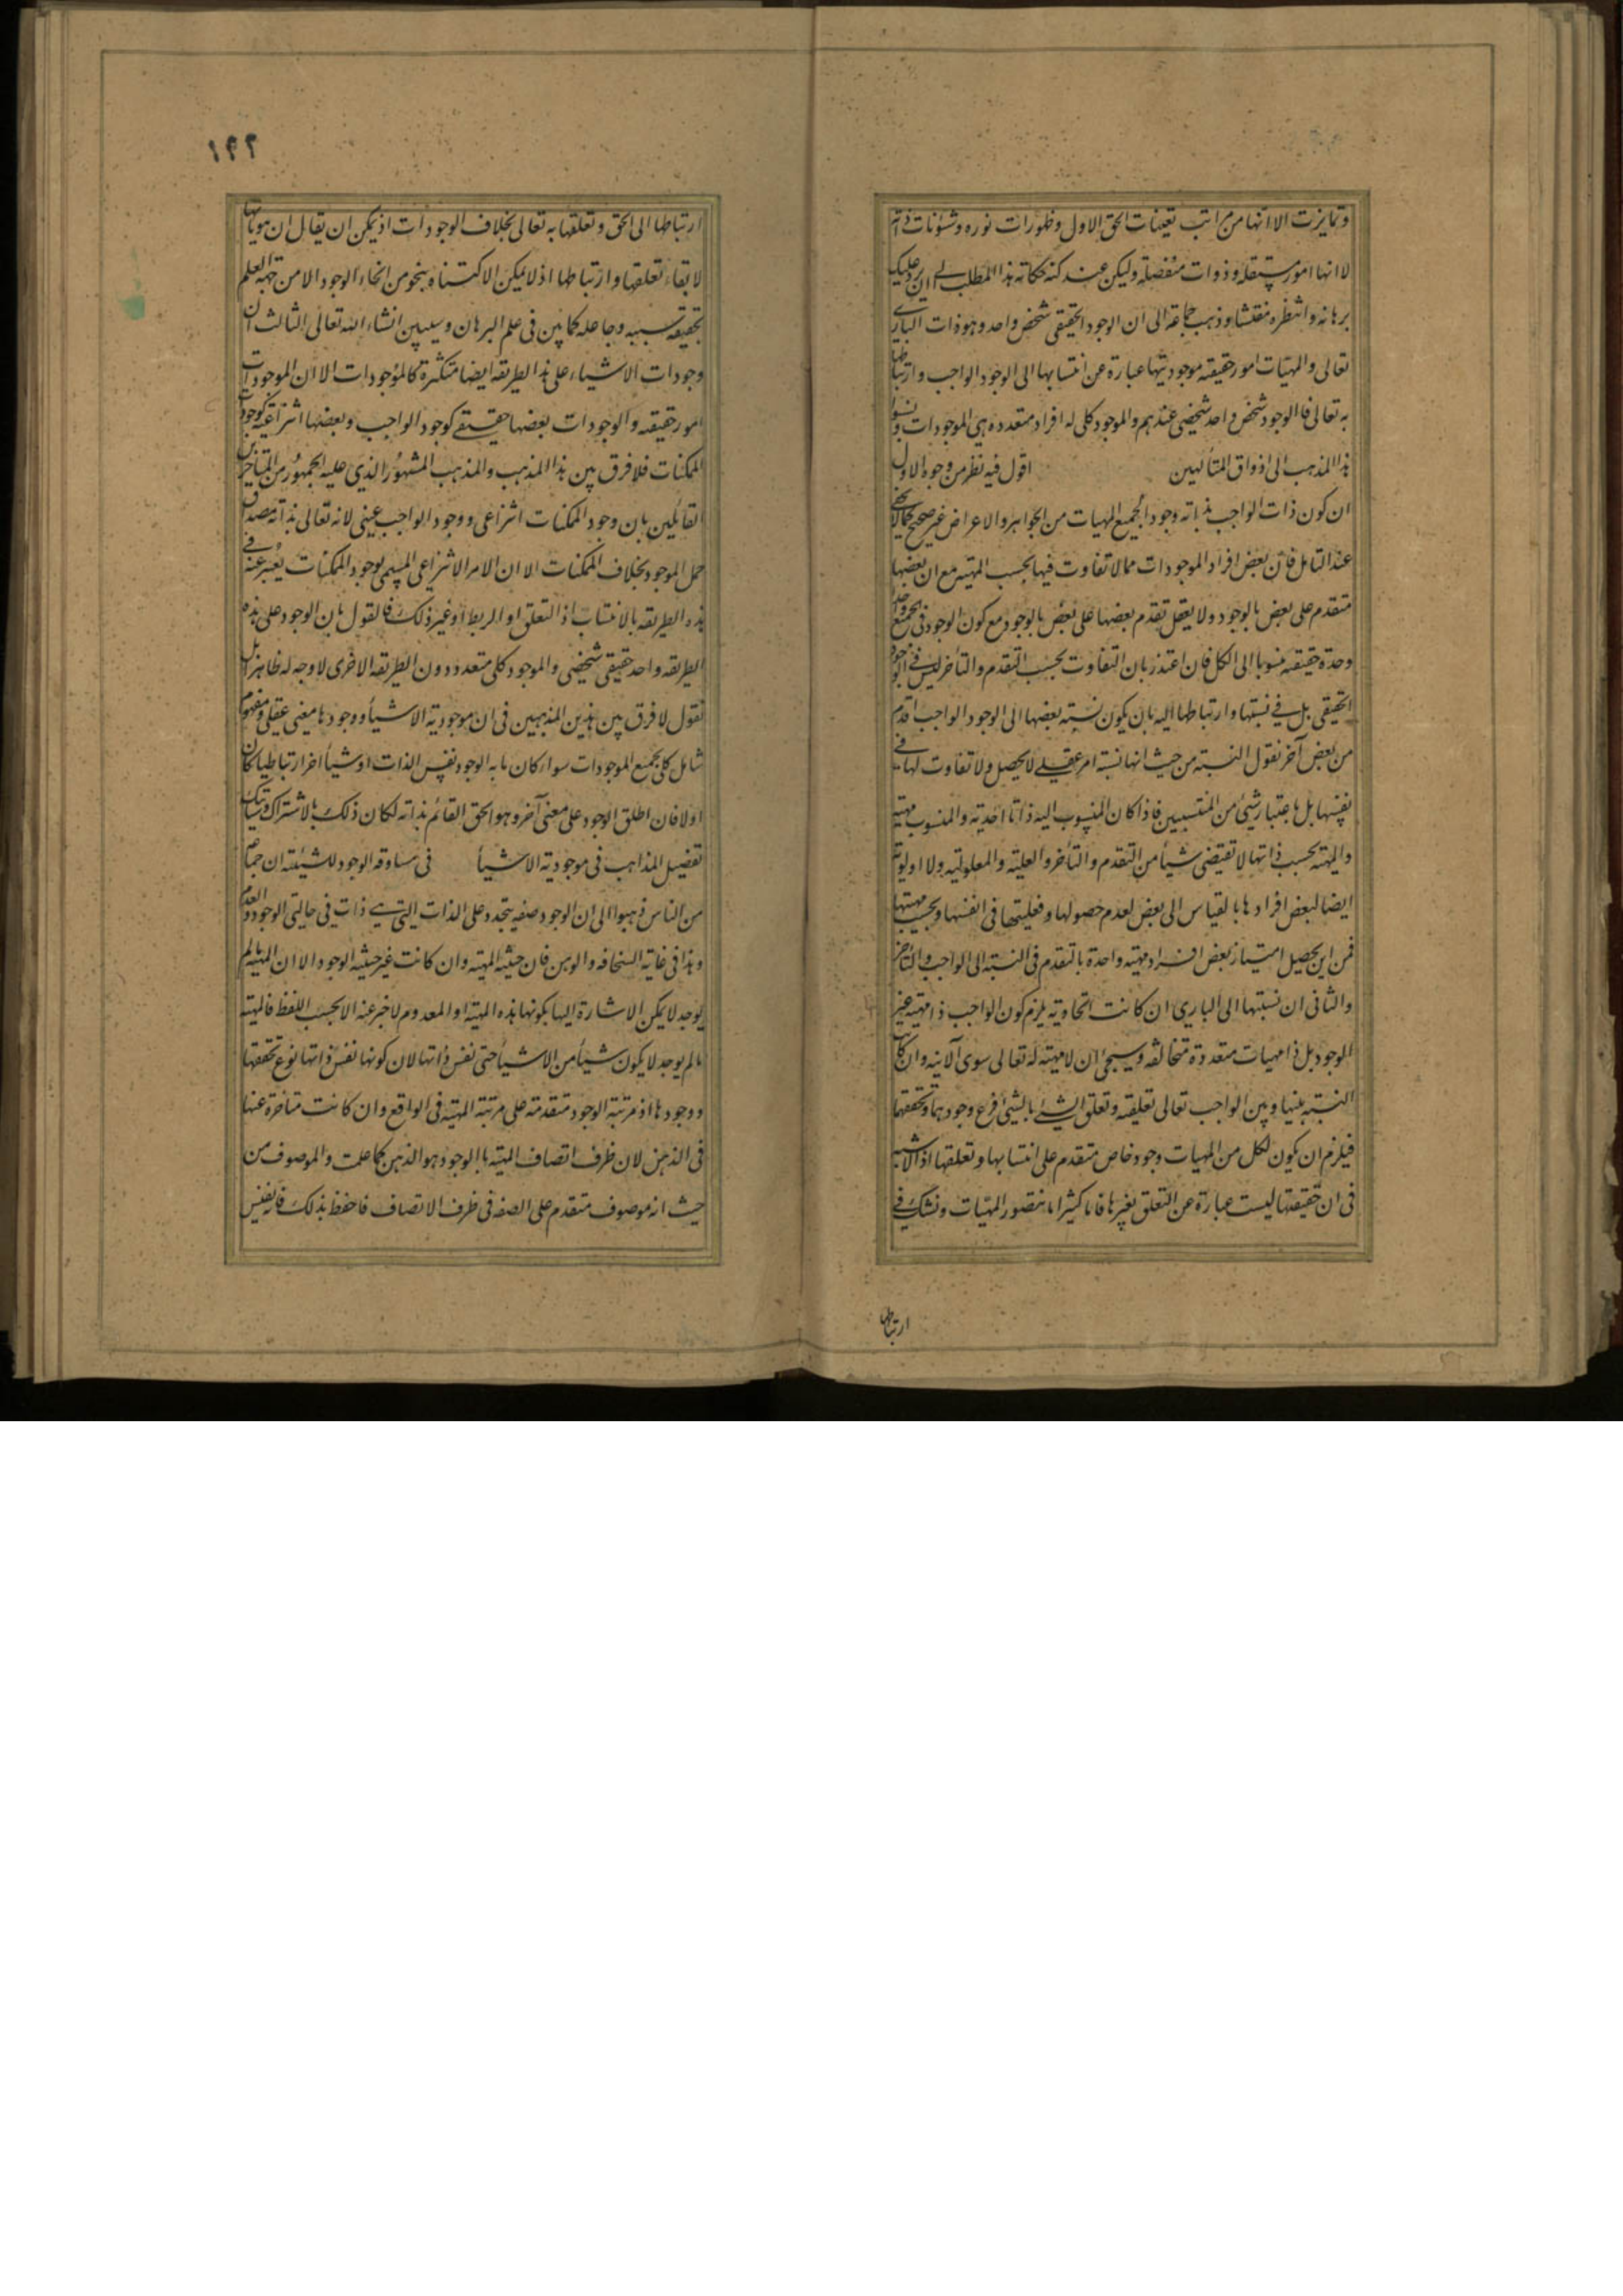 وتمايزت الا انها من مراتب تعينات الحق الاول وظهورات نوره وشئونات ذاته
لا انها امور مستقله وذوات منفصلة وليكن عندك حكاته هذا المطلب الى ان يرد عليك
برهانه وانتظره مفتشا وذهب جماعة الى ان الوجود الحقيقى شخص واحد وهو ذات البارى
تعالى والمهيات امور حقيقته موجوديتها عبارة عن انتسابها الى الوجود الواجب وارتباطها
به تعالى فالوجود شخص واحد شخصى عندهم والموجود كلى له افراد متعدده هى الموجودات ونسبوا
هذا المذهب الى اذواق المتألهين اقول فيه نظر من وجوه الاول
ان كون ذات الواجب بذاته وجودا لجميع المهيات من الجواهر والاعراض غير صحيح كما لا يخفى
عند التامل فان بعض افراد الموجودات مما لا تفاوت فيها بحسب المهيه مع ان بعضها
متقدم على بعض بالوجود ولا يعقل تقدم بعضها على بعض بالوجود مع كون الوجود فى الجميع واحدا
وحدة حقيقه منسوبا الى الكل فان اعتذر بان التفاوت بحسب التقدم والتأخر ليس فى الوجود
الحقيقى بل فى نسبتها وارتباطها اليه بان يكون نسبة بعضها الى الوجود الواجب اقدم
من بعض آخر نقول النسبة من حيث انها نسبة امر عقلى لا يحصل ولا تفاوت لها فى
نفسها بل باعتبار شئ من المنتسبين فاذا كان المنسوب اليه ذاتا احدية والمنسوب مهية
والمهية بحسب ذاتها لا تقتضى شيأ من التقدم والتأخر والعلية والمعلولية ولا اولوية
ايضا لبعض افرادها بالقياس الى بعض لعدم حصولها وفعليتها فى انفسها وبحسب مهيتها
فمن اين يحصل امتياز بعض افراد مهية واحدة بالتقدم فى النسبة الى الواجب والتأخر
والثانى ان نسبتها الى البارى ان كانت اتحادية يلزم كون الواجب ذا مهية غير
الوجود بل ذا مهيات متعددة متخالفه وسيجئ ان لا مهية له تعالى سوى الانيه وان كانت
النسبة بينها وبين الواجب تعالى تعلقية وتعلق الشئ بالشئ فرع وجودهما وتحققهما
فيلزم ان يكون لكل من المهيات وجود خاص متقدم على انتسابها وتعلقها اذ لا شبهة
فى ان حقيقتها ليست عبارة عن التعلق بغيرها فانا كثيرا ما نتصور المهيات ونشك فى
ارتباطها
١٢٢
ارتباطها الى الحق وتعلقها به تعالى بخلاف الوجودات اذ يمكن ان يقال ان هوياتها
لا بقاء تعلقها وارتباطها اذ لا يمكن الاكتناه بنحو من انحاء الوجود الا من جهة العلم
بحقيقة سببه وجاعله كما بين فى علم البرهان وسيبين انشاء الله تعالى الثالث ان
وجودات الاشياء على هذا الطريقه ايضا متكثرة كالموجودات الا ان الموجودات
امور حقيقه والوجودات بعضها حقيقى كوجود الواجب وبعضها انتزاعية كوجودات
الممكنات فلا فرق بين هذا المذهب والمذهب المشهور الذى عليه الجمهور من المتأخرين
القائلين بان وجود الممكنات انتزاعى ووجود الواجب عينى لانه تعالى بذاته مصداق
حمل الموجود بخلاف الممكنات الا ان الامر الانتزاعى المسمى بوجود الممكنات يعبر عنه فى
هذه الطريقه بالانتساب اذ التعلق او الربط او غير ذلك فالقول بان الوجود على هذه
الطريقه واحد حقيقى شخصى والموجود كلى متعدد دون الطريقه الاخرى لا وجه له ظاهرا بل
نقول لا فرق بين هذين المذهبين فى ان موجودية الاشيأ ووجودها معنى عقلى ومفهوم
شامل كلى لجميع الموجودات سواء كان ما به الوجود نفس الذات او شيأ اخر ارتباطيا كان
اولا فان اطلق الوجود على معنى آخر وهو الحق القائم بذاته لكان ذلك بالاشتراك وسيأتيك
تفصيل المذاهب فى موجودية الاشيأ فى مساوقة الوجود للشيئته ان جماعة
من الناس ذهبوا الى ان الوجود صفه يتجدد على الذات التى هى ذات فى حالتى الوجود والعدم
وهذا فى غاية السخافه والوهن فان حيثية المهيه وان كانت غير حيثية الوجود الا ان المهية ما لم
يوجد لا يمكن الاشارة اليها بكونها هذه المهيه او المعدوم لا خبر عنه الا بحسب اللفظ فالمهية
ما لم يوجد لا يكون شيأ من الاشيأ حتى نفس ذاتها لان كونها نفس ذاتها نوع تحققها
ووجودها اذ مرتبة الوجود متقدمة على مرتبة المهية فى الواقع وان كانت متاخرة عنها
فى الذهن لان ظرف اتصاف المهيه بالوجود هو الذهن كما علمت والموصوف من
حيث انه موصوف متقدم على الصفه فى ظرف الاتصاف فاحفظ بذلك فانه نفيس